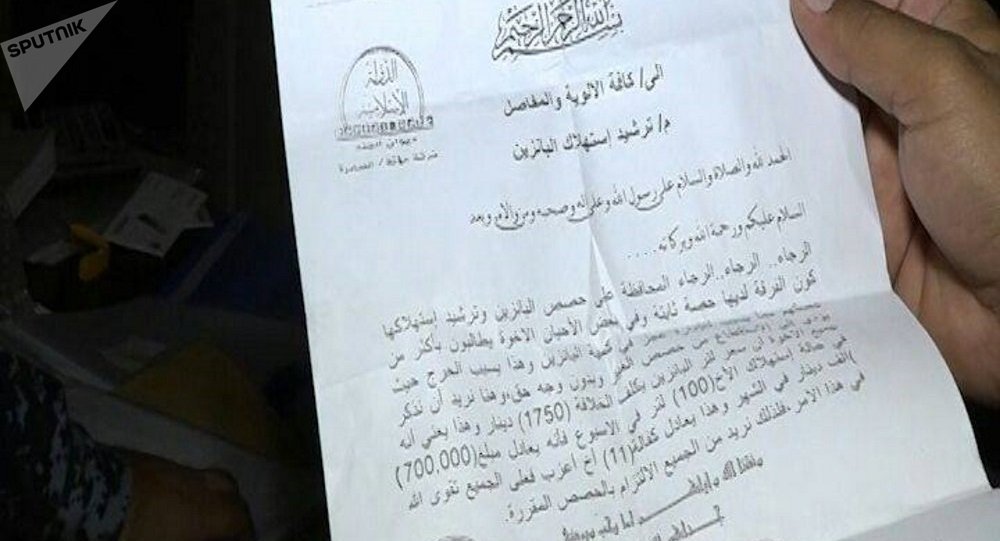 SPUTNIK
بسم الله الرحمن الرحيم
الدولة
الإسلامية
ديوان الجند
الى/ كافة الالوية والمفاصل
م/ ترشيد إستهلاك البانزين
الحمد لله والصلاة والسلام على رسول الله وعلى اله وصحبه ومن والاه وبعد
السلام عليكم ورحمة الله وبركاته....
الرجاء.. الرجاء..الرجاء المحافظة على حصص البانزين وترشيد إستهلاكها
كون الفرقة لديها حصة ثابتة وفي بعض الاحيان الاخوة يطالبون بأكثر من
في كمية البانزين وهذا يسبب الحرج حيث
من حصص الغير وبدون وجه حق،وهنا نريد أن نذكر
جميع الاخوة أن سعر لتر البانزين يكلف الخلافة (1750) دينار وهذا يعني أنه
في حالة إستهلاك الأخ(100) لتر في الاسبوع فأنه يعادل مبلغ(700,000)
ألف دينار في الشهر وهذا يعادل كفالة(11) أخ أعزب فعلى الجميع تقوى الله
في هذا الأمر ،فلذلك نريد من الجميع الالتزام بالحصص المقررة.